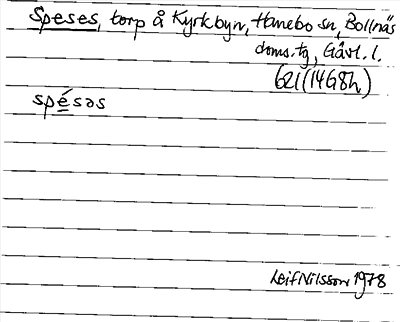 Speses, torp å Kyrkbyn, Hanebo sn, Bollnäs
doms.tg, Gävl. l.
621(14G8h)
spésəs
Leif Nilsson 1978